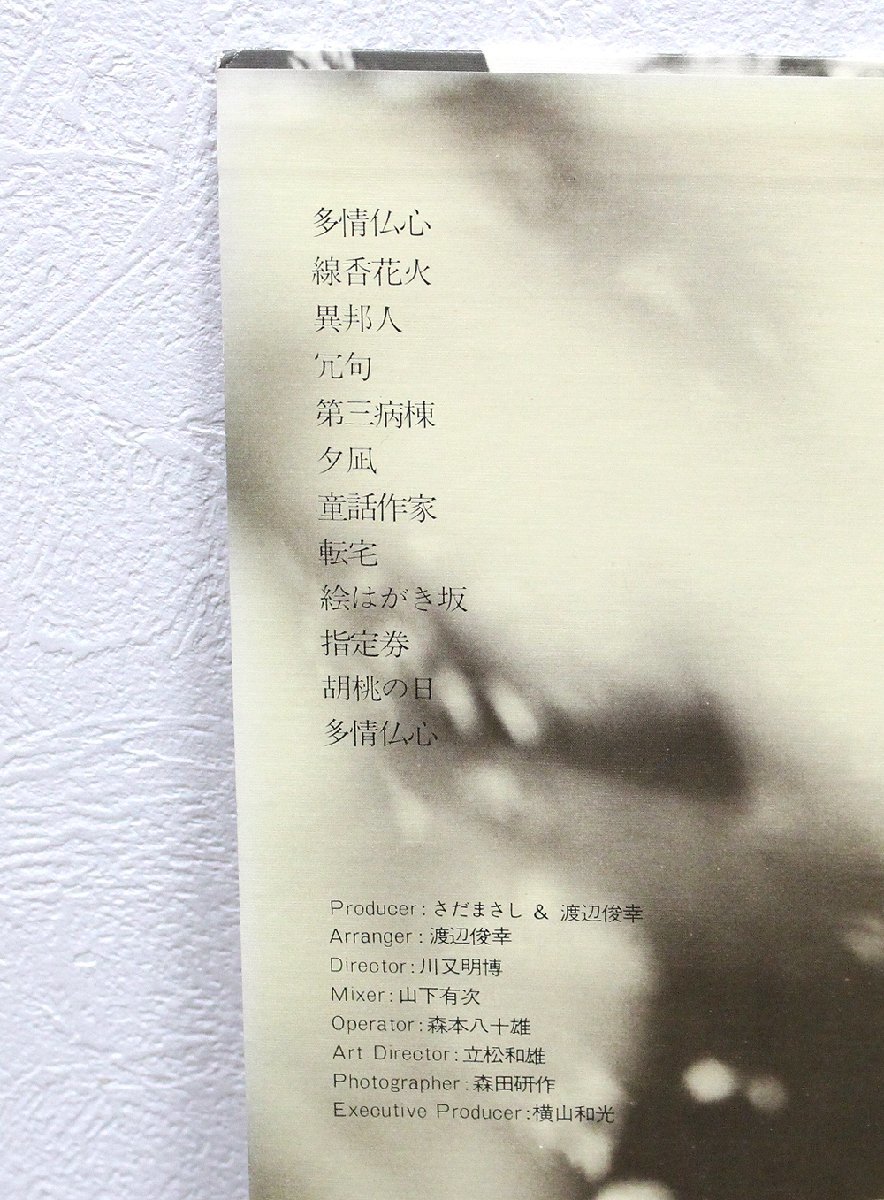 多情仏心
線香花火
異邦人
冗句
第三病棟
夕凪
童話作家
転宅
絵はがき坂
指定券
胡桃の日
多情仏心
Producer:さだまさし & 渡辺俊幸
Arranger:渡辺俊幸
Director:川又明博
Mixer:山下有次
Operator:森本八十雄
Art Director:立松和雄
Photographer:森田研作
Executive Producer:横山和光